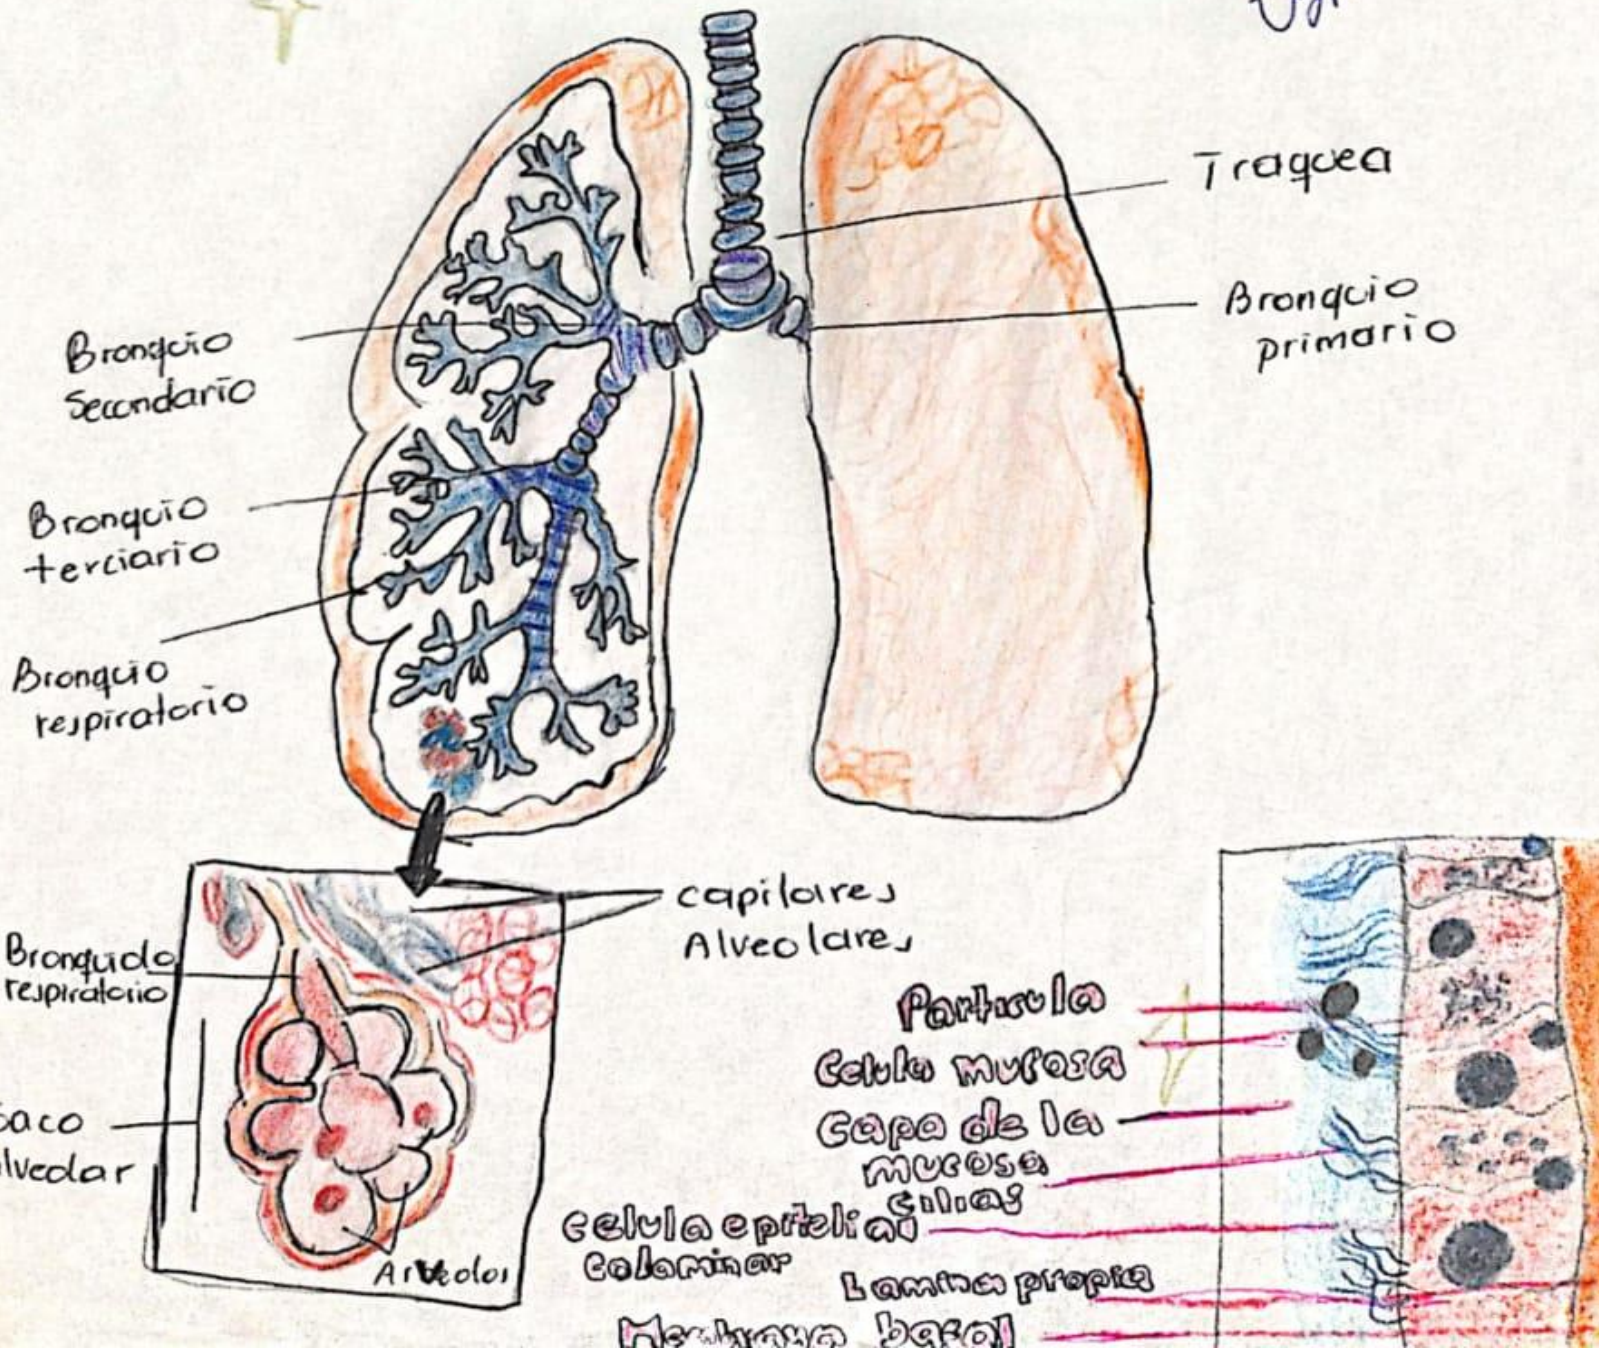 Traquea
Bronquio
primario
Bronquio
Secundario
Bronquio
terciario
Bronquio
respiratorio
capilares
Alveolares
Bronquido
respiratorio
saco
alveolar
Alveolos
Particula
Celula mucosa
Capa de la
mucosa
cilias
celula epitelial
colominar
Lamina propia
Membrana basal